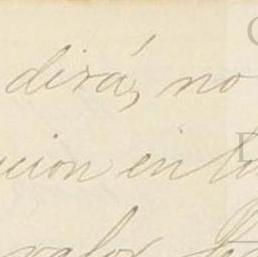 dirá, no
cion en
valor